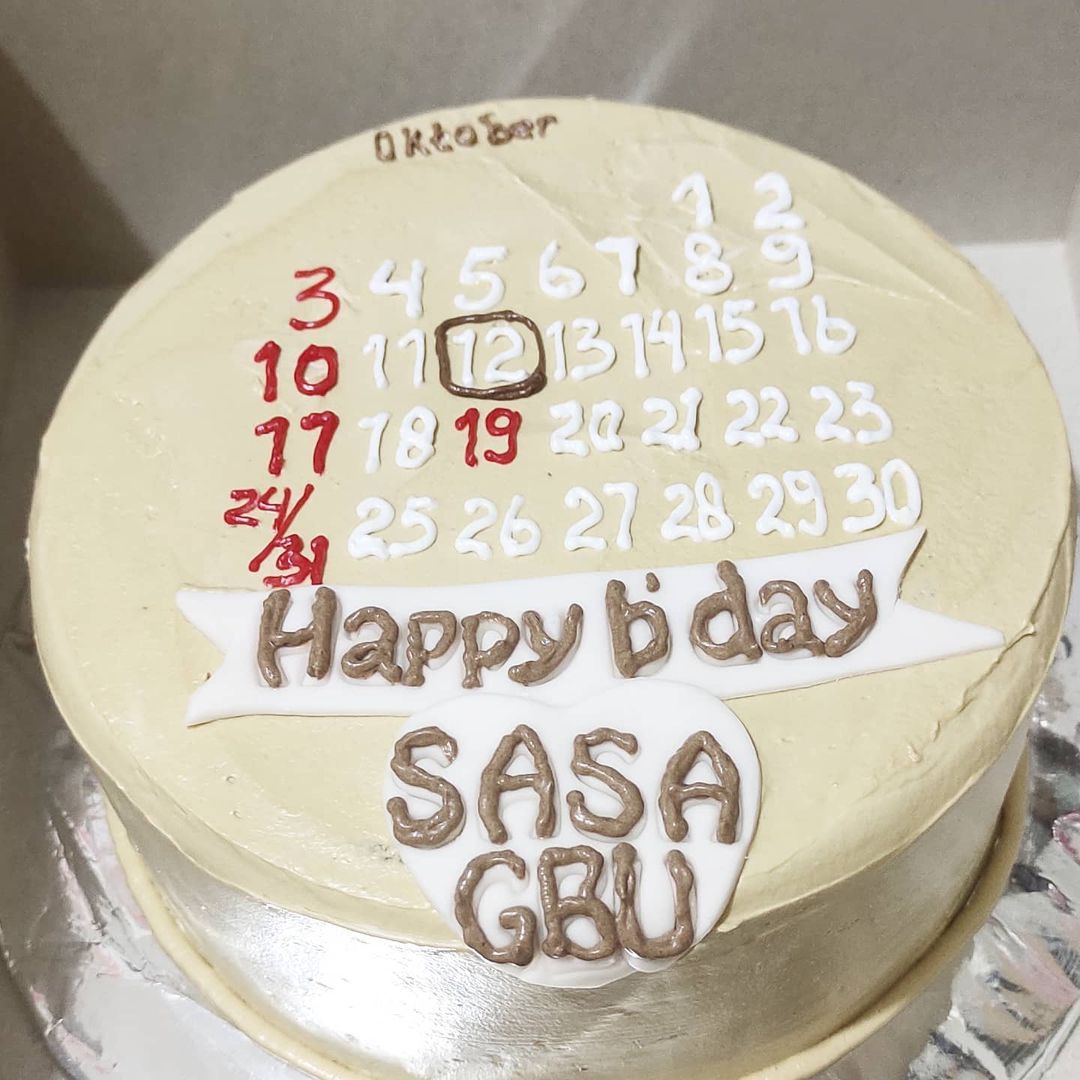 Oktober
1 2
3 4 5 6 7 8 9
10 11 12 13 14 15 16
17 18 19 20 21 22 23
24/31 25 26 27 28 29 30
Happy b'day
SASA
GBU